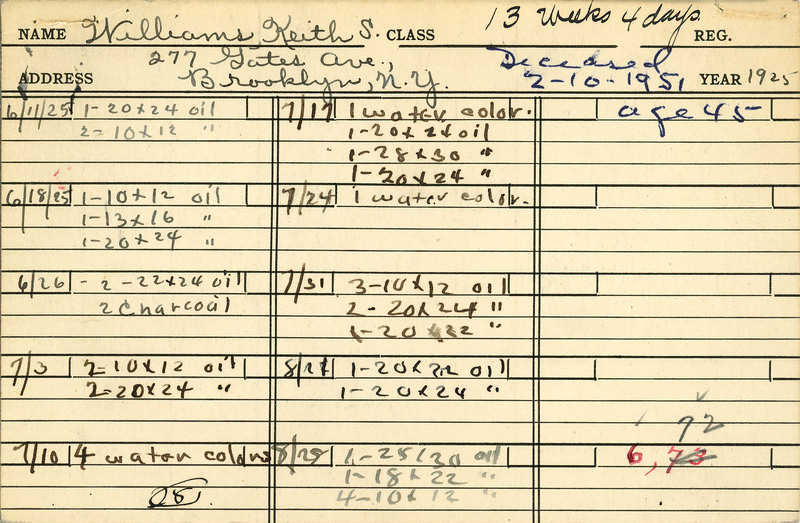 NAME Williams, Keith S. CLASS 13 Weeks 4 days. REG.
277 Gates Ave.,
ADDRESS Brooklyn, N.Y.
Deceased
2-10-1951 YEAR 1925
age 45
6/11/25 1-20x24 oil
2-10x12 "
6/18/25 1-10x12 oil
1-13x16 "
1-20x24 "
6/26 - 2 -22x24 oil
2 charcoal
7/3 2-10x12 oil
2-20x24 "
7/10 4 water colors
(28)
7/17 1 water color.
1-20x24 oil
1-28x30 "
1-20x24 "
7/24 1 water color.
7/31 3-10x12 oil
2-20x24 "
1-20x22 "
8/21 1-20x22 oil
1-20x24 "
8/29 1-25x30 oil
1-18x22 "
4-10x12 "
92
6,73